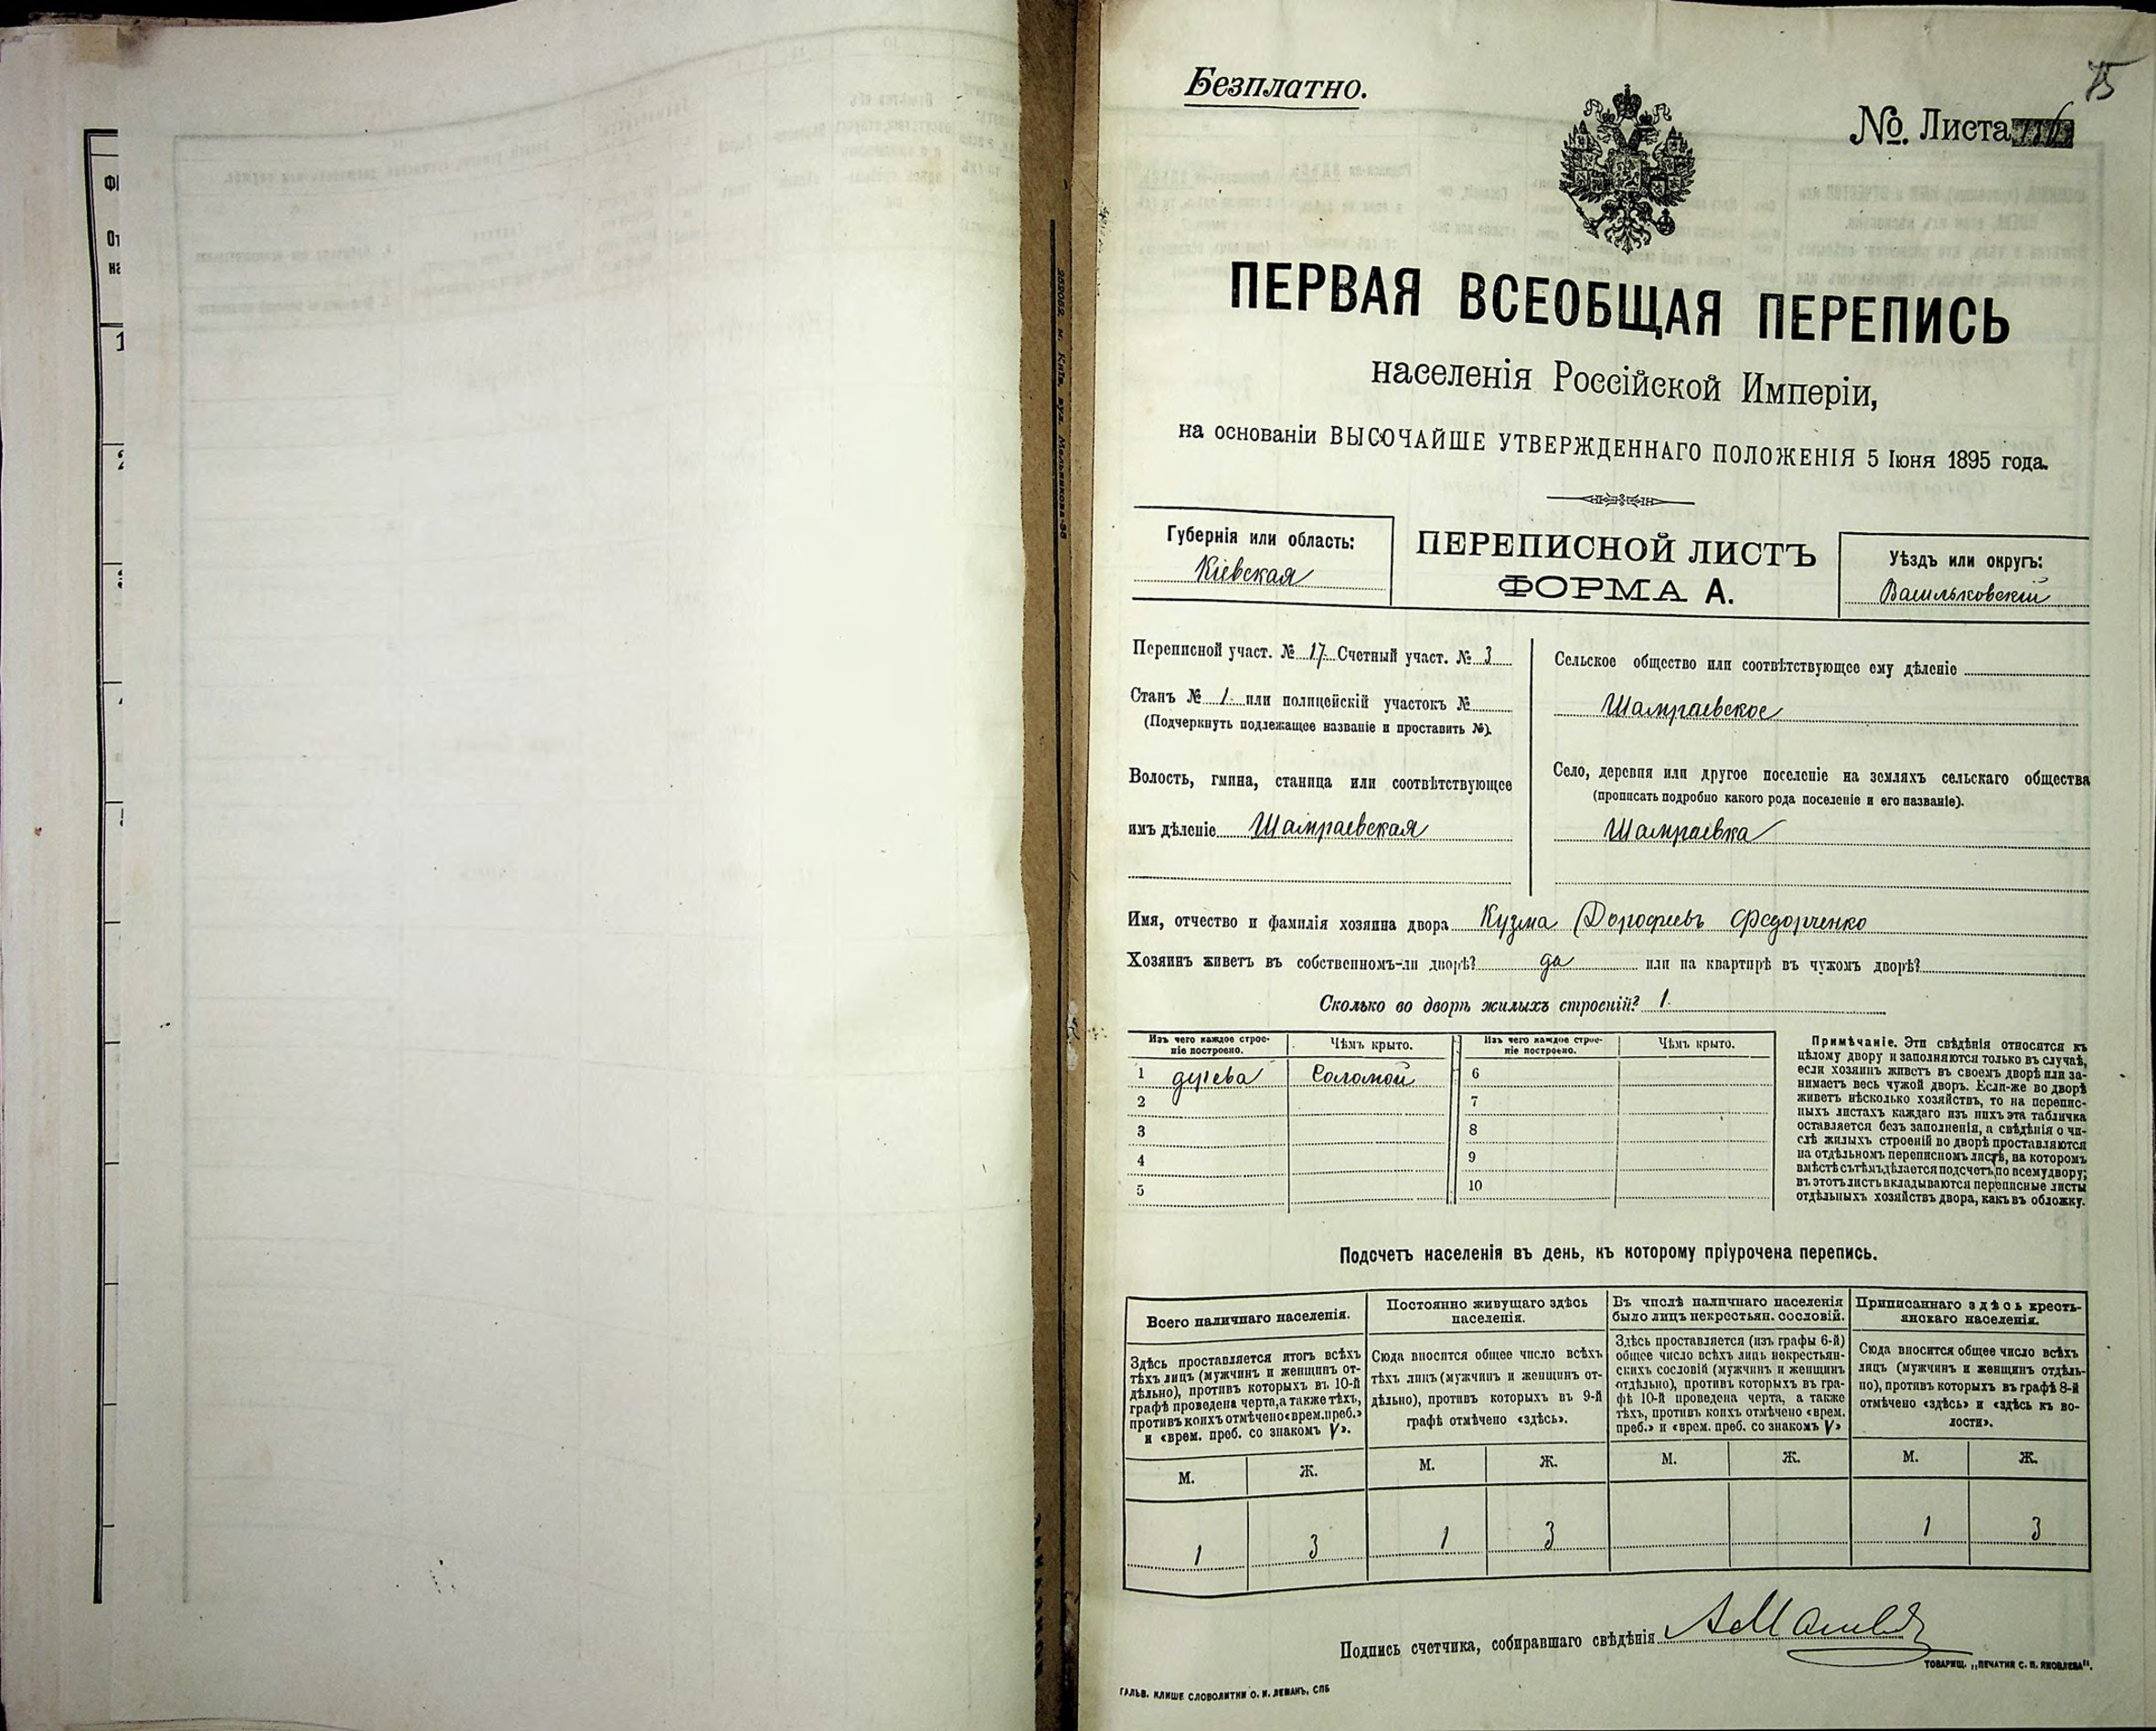 Безплатно.
75
№. Листа
ПЕРВАЯ ВСЕОБЩАЯ ПЕРЕПИСЬ
населенія Россійской Имперіи,
на основаніи ВЫСОЧАЙШЕ УТВЕРЖДЕННАГО ПОЛОЖЕНІЯ 5 Іюня 1895 года.
Губернія или область:
Кіевская
ПЕРЕПИСНОЙ ЛИСТЪ
ФОРМА А.
Уѣздъ или округъ:
Васильковскій
Переписной участ. № 17 Счетный участ. № 3
Станъ № 1 или полицейскій участокъ №
(Подчеркнуть подлежащее названіе и проставить №).
Волость, гмина, станица или соотвѣтствующее
имъ дѣленіе Шамраевская
Сельское общество или соотвѣтствующее ему дѣленіе
Шамраевское
Село, деревня или другое поселеніе на земляхъ сельскаго общества
(прописать подробно какого рода поселеніе и его названіе).
Шамраевка
Имя, отчество и фамилія хозяина двора Кузма Дорофеевъ Федорченко
Хозяинъ живетъ въ собственномъ-ли дворѣ? да или на квартирѣ въ чужомъ дворѣ?
Сколько во дворѣ жилыхъ строеній? 1.
Изъ чего каждое строе-
ніе построено.
Чѣмъ крыто.
Изъ чего каждое строе-
ніе построено.
Чѣмъ крыто.
1 дерева Соломой 6
2 7
3 8
4 9
5 10
Примѣчаніе. Эти свѣдѣнія относятся къ
цѣлому двору и заполняются только въ случаѣ,
если хозяинъ живетъ въ своемъ дворѣ или за-
нимаетъ весь чужой дворъ. Если-же во дворѣ
живетъ нѣсколько хозяйствъ, то на перепис-
ныхъ листахъ каждаго изъ нихъ эта табличка
оставляется безъ заполненія, а свѣдѣнія о чи-
слѣ жилыхъ строеній во дворѣ проставляются
на отдѣльномъ переписномъ листѣ, на которомъ
вмѣстѣ съ тѣмъ дѣлается подсчетъ по всему двору;
въ этотъ листъ вкладываются переписные листы
отдѣльныхъ хозяйствъ двора, какъ въ обложку.
Подсчетъ населенія въ день, къ которому пріурочена перепись.
Всего наличнаго населенія.
Здѣсь проставляется итогъ всѣхъ
тѣхъ лицъ (мужчинъ и женщинъ от-
дѣльно), противъ которыхъ въ 10-й
графѣ проведена черта, а также тѣхъ,
противъ коихъ отмѣчено «врем. преб.»
и «врем. преб. со знакомъ V».
М. Ж.
1 3
Постоянно живущаго здѣсь
населенія.
Сюда вносится общее число всѣхъ
тѣхъ лицъ (мужчинъ и женщинъ от-
дѣльно), противъ которыхъ въ 9-й
графѣ отмѣчено «здѣсь».
М. Ж.
1 3
Въ числѣ наличнаго населенія
было лицъ некрестьян. сословій.
Здѣсь проставляется (изъ графы 6-й)
общее число всѣхъ лицъ некрестьян-
скихъ сословій (мужчинъ и женщинъ
отдѣльно), противъ которыхъ въ гра-
фѣ 10-й проведена черта, а также
тѣхъ, противъ коихъ отмѣчено «врем.
преб.» и «врем. преб. со знакомъ V»
М. Ж.
Приписаннаго здѣсь кресть-
янскаго населенія.
Сюда вносится общее число всѣхъ
лицъ (мужчинъ и женщинъ отдѣль-
но), противъ которыхъ въ графѣ 8-й
отмѣчено «здѣсь» и «здѣсь къ во-
лости».
М. Ж.
1 3
Подпись счетчика, собиравшаго свѣдѣнія
ТОВАРИЩ. „ПЕЧАТНЯ С. П. ЯКОВЛЕВА".
ГАЛЬВ. КЛИШЕ СЛОВОЛИТНИ О. И. ЛЕМАНЪ, СПБ